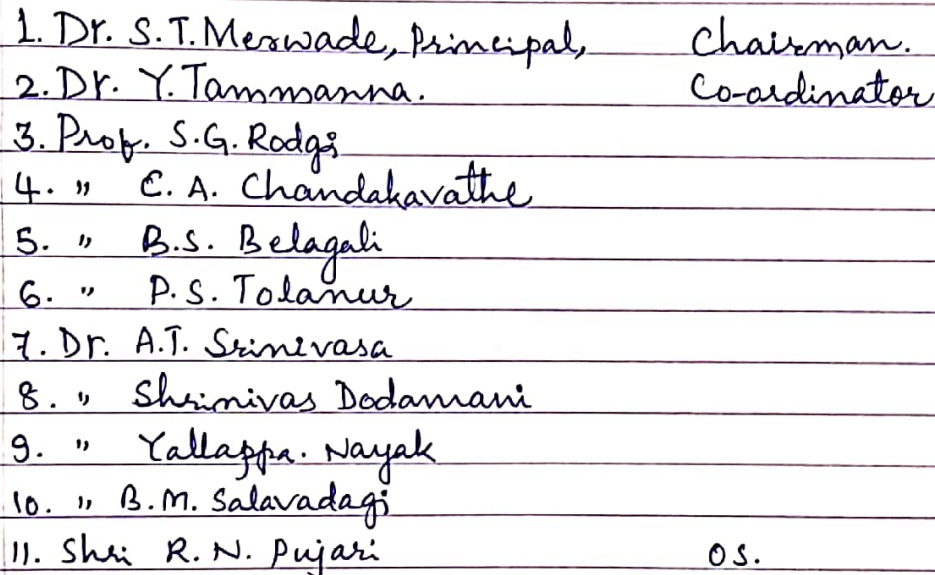 1. Dr. S.T. Merwade, Principal, Chairman.
2. Dr. Y. Tammanna. Co-ordinator
3. Prof. S.G. Rodgi
4. " C. A. Chandakavathe
5. " B.S. Belagali
6. " P.S. Tolanur
7. Dr. A.T. Srinivasa
8. " Shrinivas Dodamani
9. " Yallappa. Nayak
10. " B.M. Salavadagi
11. Shri R. N. Pujari OS.